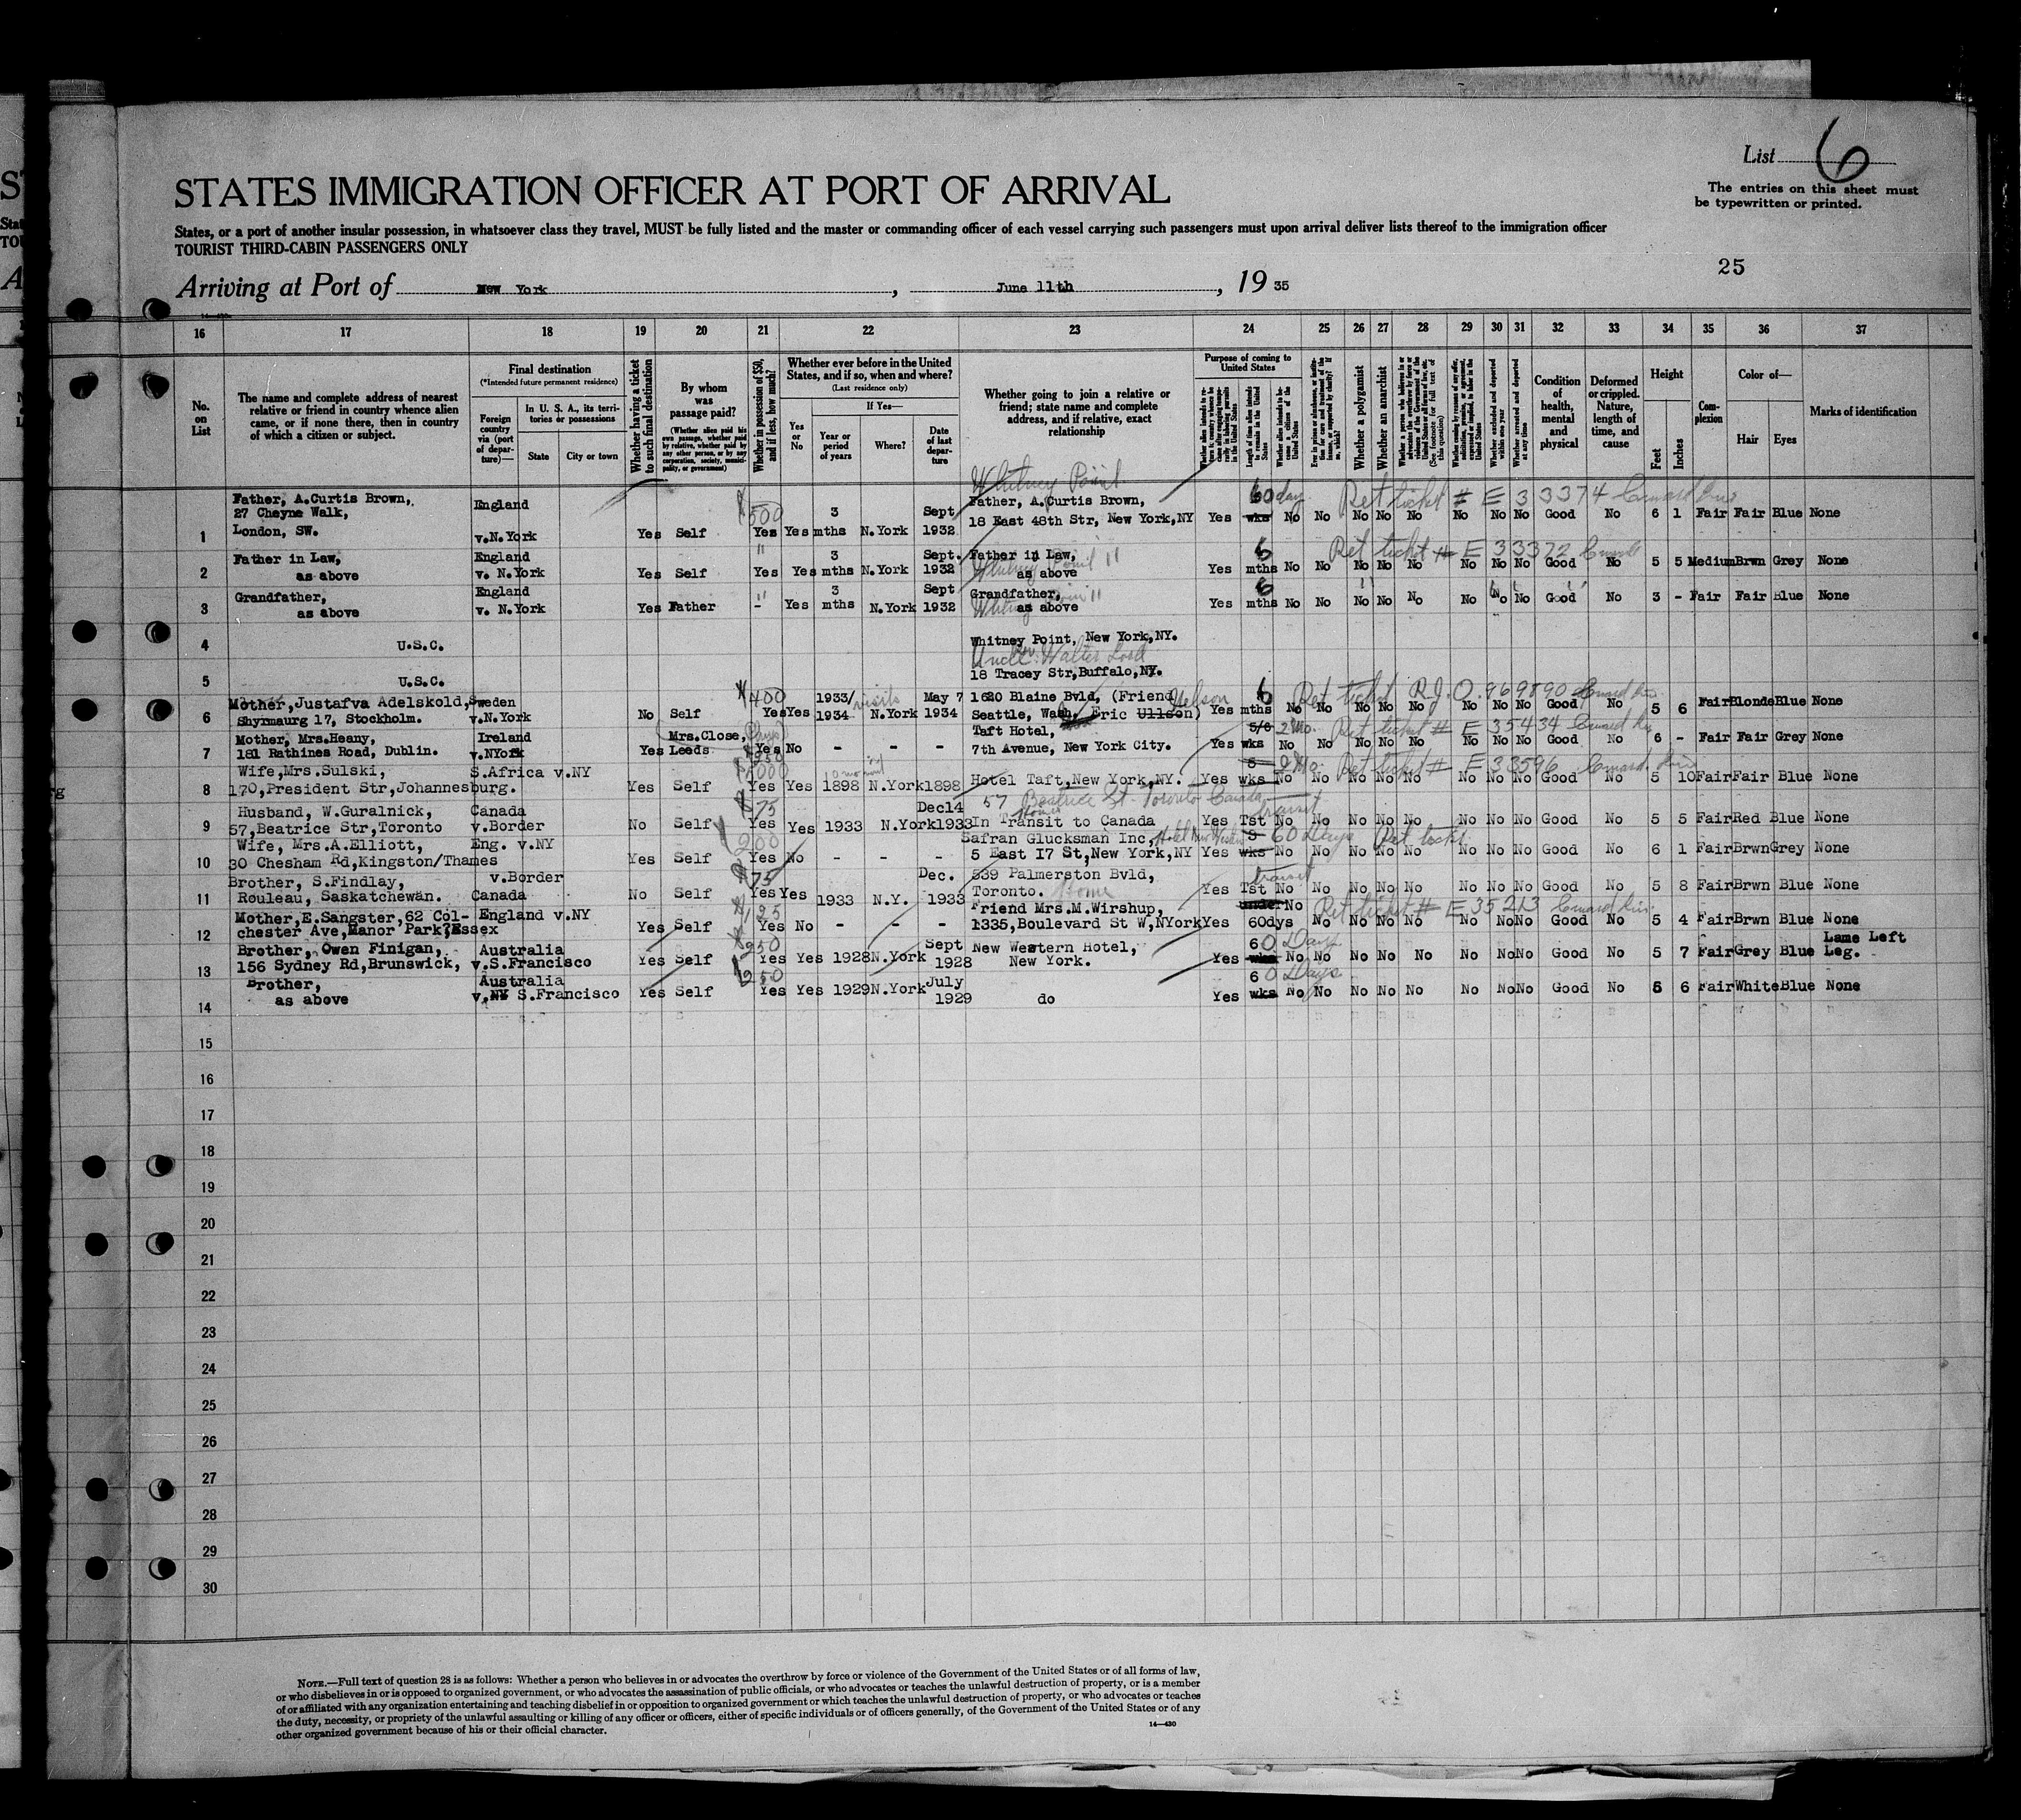 List 6
The entries on this sheet must
be typewritten or printed.
STATES IMMIGRATION OFFICER AT PORT OF ARRIVAL
States, or a port of another insular possession, in whatsoever class they travel, MUST be fully listed and the master or commanding officer of each vessel carrying such passengers must upon arrival deliver lists thereof to the immigration officer
TOURIST THIRD-CABIN PASSENGERS ONLY
25
Arriving at Port of New York, June 11th, 19 35
16 17 18 19 20 21 22 23 24 25 26 27 28 29 30 31 32 33 34 35 36 37
No. on List
The name and complete address of nearest
relative or friend in country whence alien
came, or if none there, then in country
of which a citizen or subject.
Final destination
(*Intended future permanent residence)
Foreign country via (port of departure)—
In U. S. A., its territories or possessions
State
City or town
Whether having a ticket to such final destination
By whom was passage paid?
(Whether alien paid his own passage, whether paid by relative, whether paid by any other person, or by any corporation, society, municipality, or government)
Whether in possession of $50, and if less, how much?
Whether ever before in the United
States, and if so, when and where?
(Last residence only)
Yes or No
If Yes—
Year or period of years
Where?
Date of last departure
Whether going to join a relative or
friend; state name and complete
address, and if relative, exact
relationship
Purpose of coming to United States
Length of time alien intends to remain in the United States
Whether alien intends to become a citizen of the United States
Whether a polygamist
Whether an anarchist
(See footnote for full text of this question)
Whether excluded and deported within one year
Whether arrested and deported at any time
Condition of health, mental and physical
Deformed or crippled. Nature, length of time, and cause
Height
Feet
Inches
Complexion
Color of—
Hair
Eyes
Marks of identification
Whitney Point
Father, A.Curtis Brown, England 500 3 Sept Father, A.Curtis Brown, 60 days Ret ticket # E 33374 Cunard Line
27 Cheyne Walk, 18 East 48th Str, New York,NY
1 London, SW. v.N.York Yes Self Yes Yes mths N.York 1932 Yes wks No No No No No No No No Good No 6 1 Fair Fair Blue None
Father in Law, England " 3 Sept. Father in Law, 6 Ret ticket # E 33372 Cunard
2 as above v. N.York Yes Self Yes Yes mths N.York 1932 Whitney Point as above Yes mths No No No No No No No No Good No 5 5 Medium Brwn Grey None
Grandfather, England " 3 Sept Grandfather, 6
3 as above v. N.York Yes Father - Yes mths N.York 1932 as above Yes mths No No No No No No No No Good No 3 - Fair Fair Blue None
4 U.S.C. Whitney Point, New York,NY.
Uncle: Walter
5 U.S.C. 18 Tracey Str,Buffalo,NY.
Mother,Justafva Adelskold, Sweden 400 1933/ visits May 7 1620 Blaine Bvld, (Friend Nelson 6 Ret ticket R.J.O. 969890 Cunard Line
6 Shyrmaurg 17, Stockholm. v.N.York No Self Yes Yes 1934 N.York 1934 Seattle, Wash, Eric Ullson) Yes mths No No No No No No No No Good No 5 6 Fair Blonde Blue None
Mother, Mrs.Heany, Ireland Mrs.Close, Taft Hotel, 5/6 2 Mo. Ret ticket # E 35434 Cunard Line
7 181 Rathines Road, Dublin. v.NYork Yes Leeds 250 Yes No - - - 7th Avenue, New York City. Yes wks No No No No No No No No Good No 6 - Fair Fair Grey None
Wife,Mrs.Sulski, S.Africa v.NY 1000 2 Mo. Ret ticket # E 33596 Cunard Line
8 170,President Str,Johannesburg. Yes Self Yes Yes 1898 N.York 1898 Hotel Taft,New York,NY. Yes wks No No No No No No No No Good No 5 10 Fair Fair Blue None
Husband, W.Guralnick, Canada 75 Dec14 57 Beatrice St. Toronto Canada Home transit
9 57,Beatrice Str,Toronto v.Border No Self Yes Yes 1933 N.York 1933 In Transit to Canada Yes Tst No No No No No No No No Good No 5 5 Fair Red Blue None
Wife, Mrs.A.Elliott, Eng. v.NY 200 Safran Glucksman Inc, 60 Days Ret ticket
10 30 Chesham Rd,Kingston/Thames Yes Self Yes No - - - 5 East 17 St,New York,NY Yes wks No No No No No No No No Good No 6 1 Fair Brwn Grey None
Brother, S.Findlay, v.Border 75 Dec. 539 Palmerston Bvld, transit
11 Rouleau, Saskatchewan. Canada No Self Yes Yes 1933 N.Y. 1933 Toronto. Home Yes Tst No No No No No No No No Good No 5 8 Fair Brwn Blue None
Mother,E.Sangster,62 Col- England v.NY 125 Friend Mrs.M.Wirshup, under No Ret ticket # E 35213 Cunard Line
12 chester Ave,Manor Park,Essex Yes Self Yes No - - - 1335,Boulevard St W,NYork Yes 60dys No No No No No No No Good No 5 4 Fair Brwn Blue None
Brother, Owen Finigan, Australia 250 Sept New Western Hotel, 60 Days Lame Left
13 156 Sydney Rd,Brunswick, v.S.Francisco Yes Self Yes Yes 1928 N.York 1928 New York. Yes wks No No No No No No No No Good No 5 7 Fair Grey Blue Leg.
Brother, Australia 250 July 60 Days
14 as above v.NY S.Francisco Yes Self Yes Yes 1929 N.York 1929 do Yes wks No No No No No No No No Good No 5 6 Fair White Blue None
15
16
17
18
19
20
21
22
23
24
25
26
27
28
29
30
NOTE.—Full text of question 28 is as follows: Whether a person who believes in or advocates the overthrow by force or violence of the Government of the United States or of all forms of law,
or who disbelieves in or is opposed to organized government, or who advocates the assassination of public officials, or who advocates or teaches the unlawful destruction of property, or is a member
of or affiliated with any organization entertaining and teaching disbelief in or opposition to organized government or which teaches the unlawful destruction of property, or who advocates or teaches
the duty, necessity, or propriety of the unlawful assaulting or killing of any officer or officers, either of specific individuals or of officers generally, of the Government of the United States or of any
other organized government because of his or their official character.
14—430